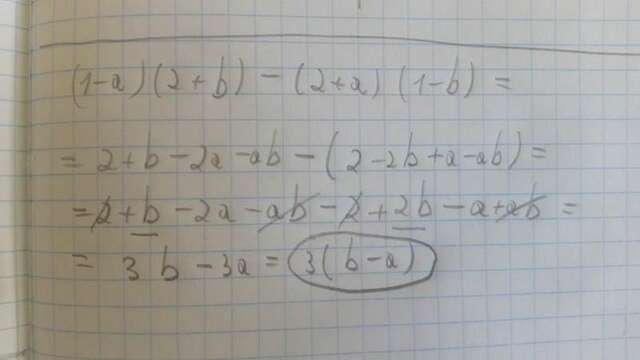 (1-a)(2+b) - (2+a)(1-b) =
= 2+b-2a-ab-(2-2b+a-ab)=
= 2+b-2a-ab-2+2b-a+ab =
= 3b-3a = 3(b-a)